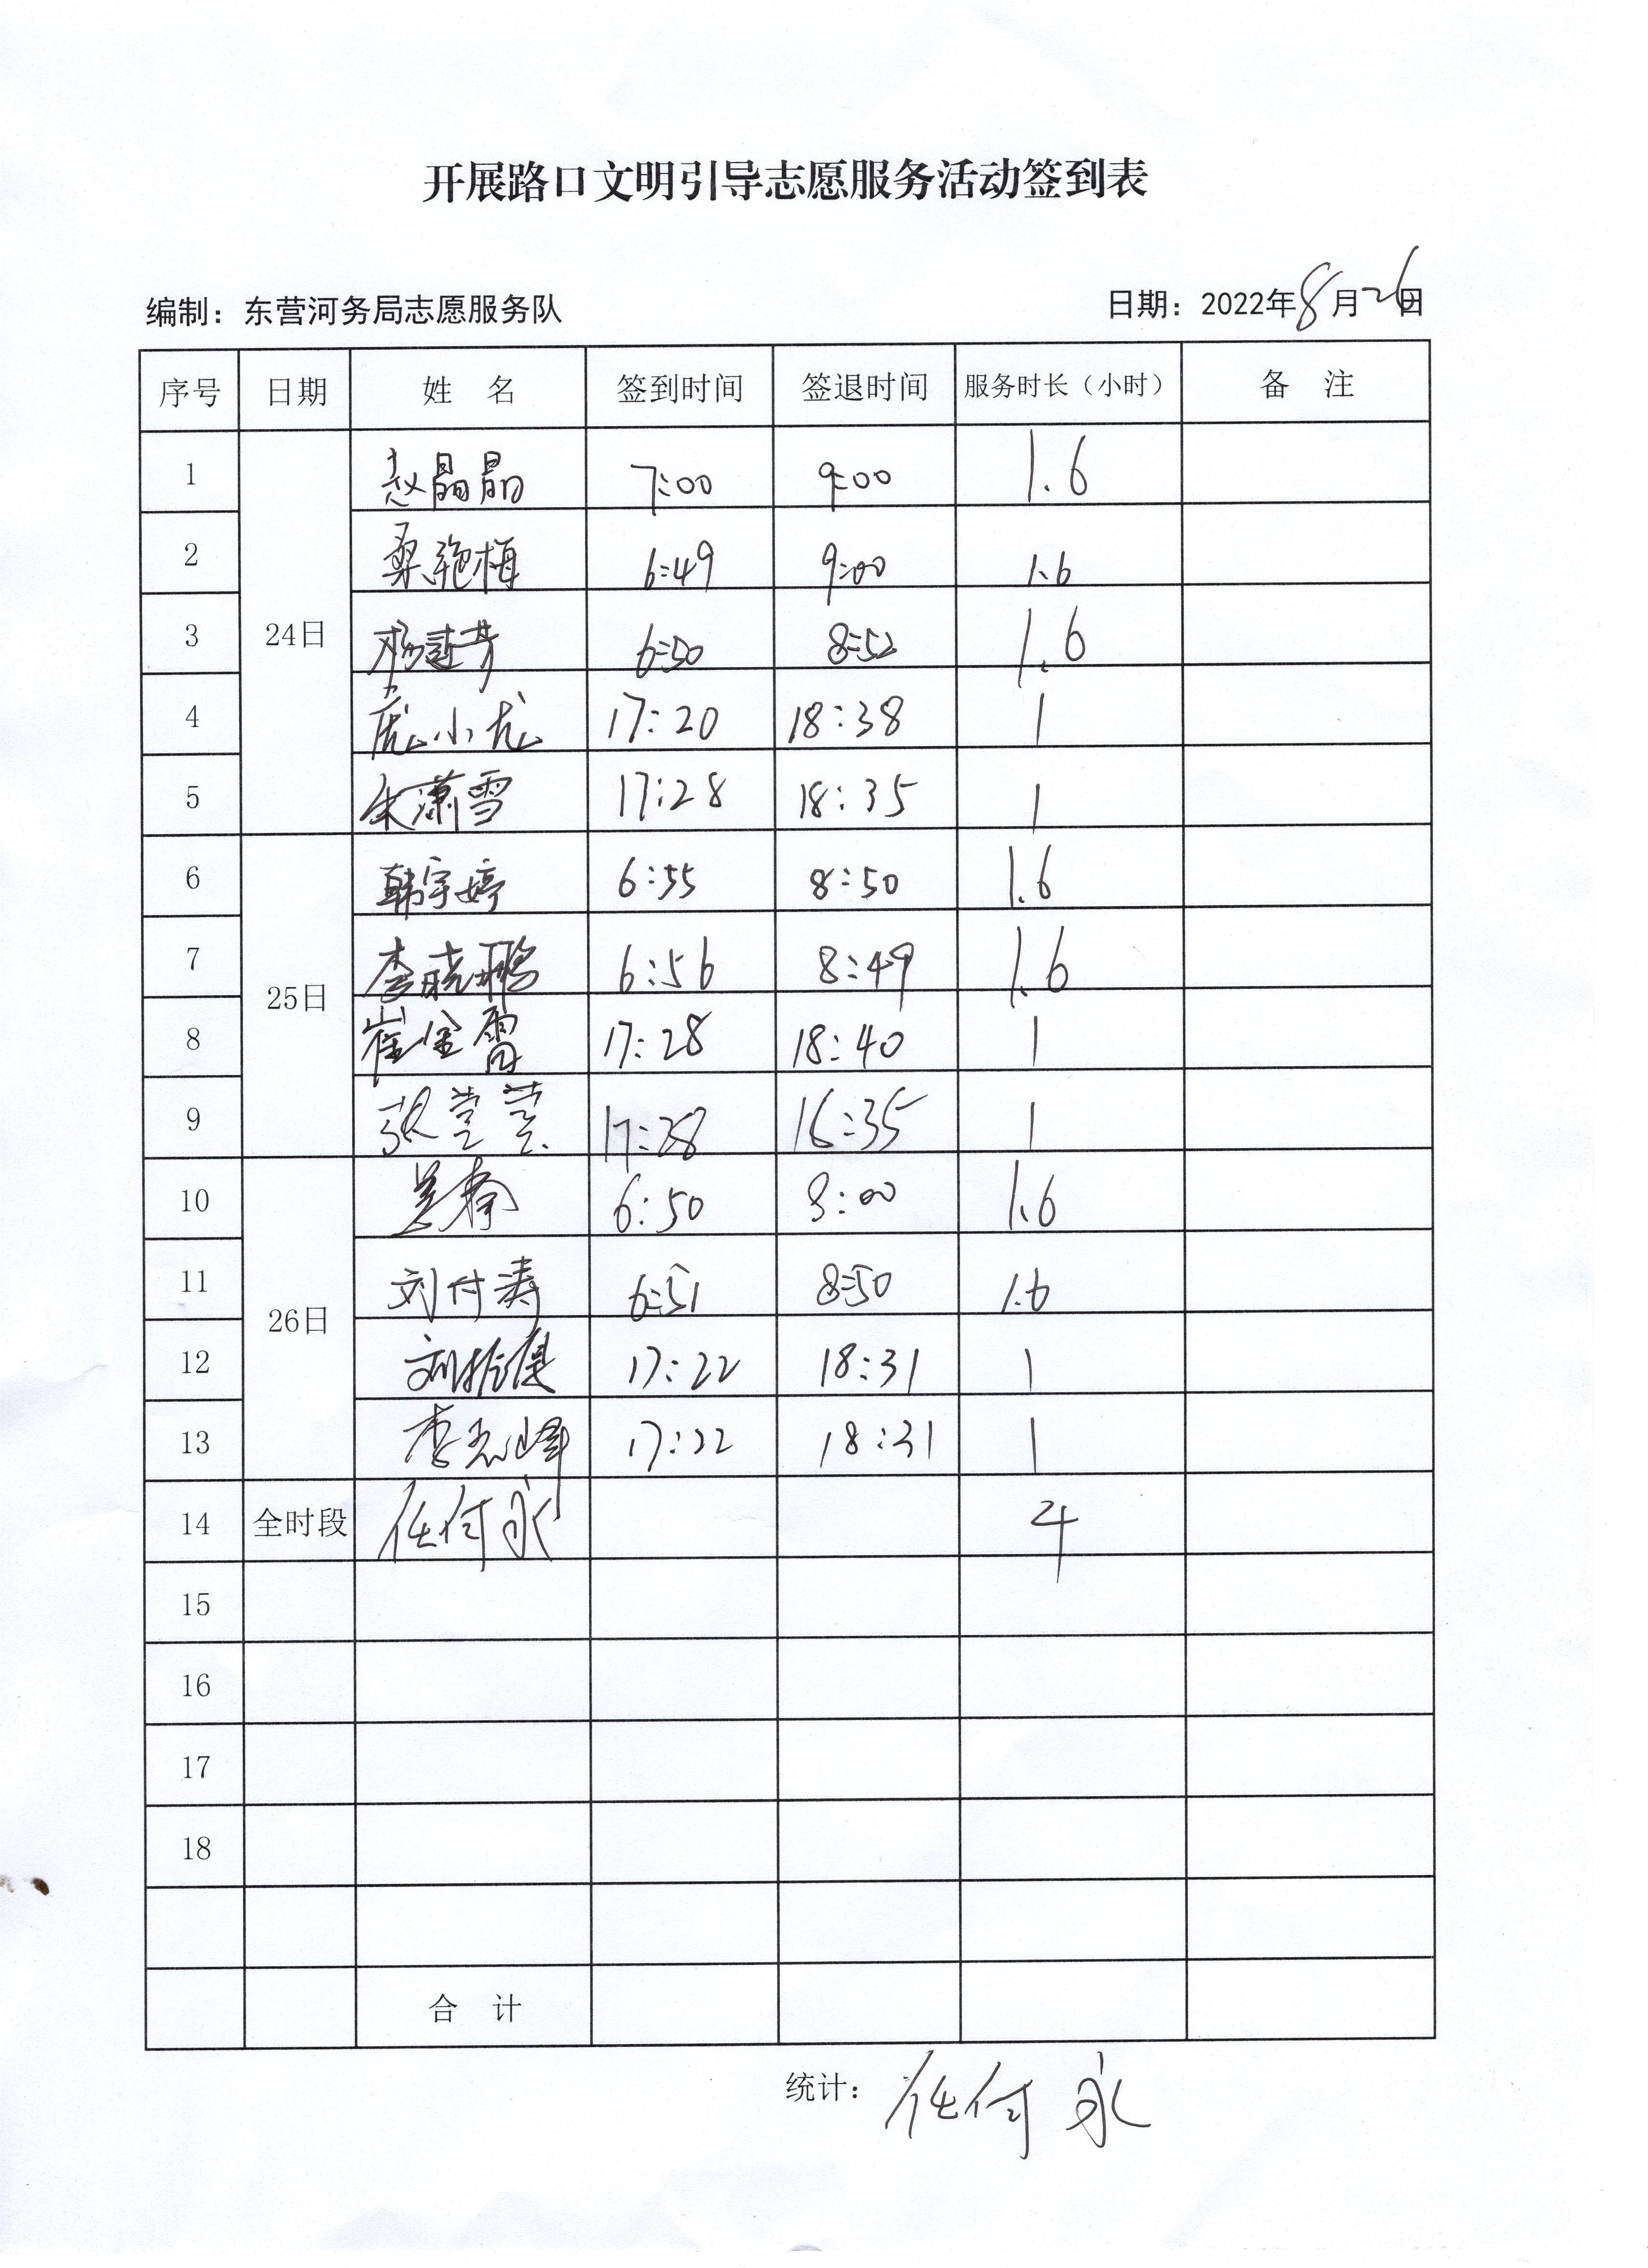 开展路口文明引导志愿服务活动签到表
编制：东营河务局志愿服务队 日期：2022年8月26日
序号 日期 姓 名 签到时间 签退时间 服务时长（小时） 备 注
1 赵晶晶 7:00 9:00 1.6
2 桑艳梅 6:49 9:00 1.6
3 24日 6:50 8:52 1.6
4 庞小龙 17:20 18:38 1
5 朱潇雪 17:28 18:35 1
6 韩宇婷 6:55 8:50 1.6
7 李晓鹏 6:56 8:49 1.6
8 25日 崔金霄 17:28 18:40 1
9 张莹莹 17:28 1
10 6:50 1.6
11 刘付涛 6:51 8:50 1.6
12 26日 17:22 18:31 1
13 李志峰 17:22 18:31 1
14 全时段 任付永 4
15
16
17
18
合 计
统计：任付永